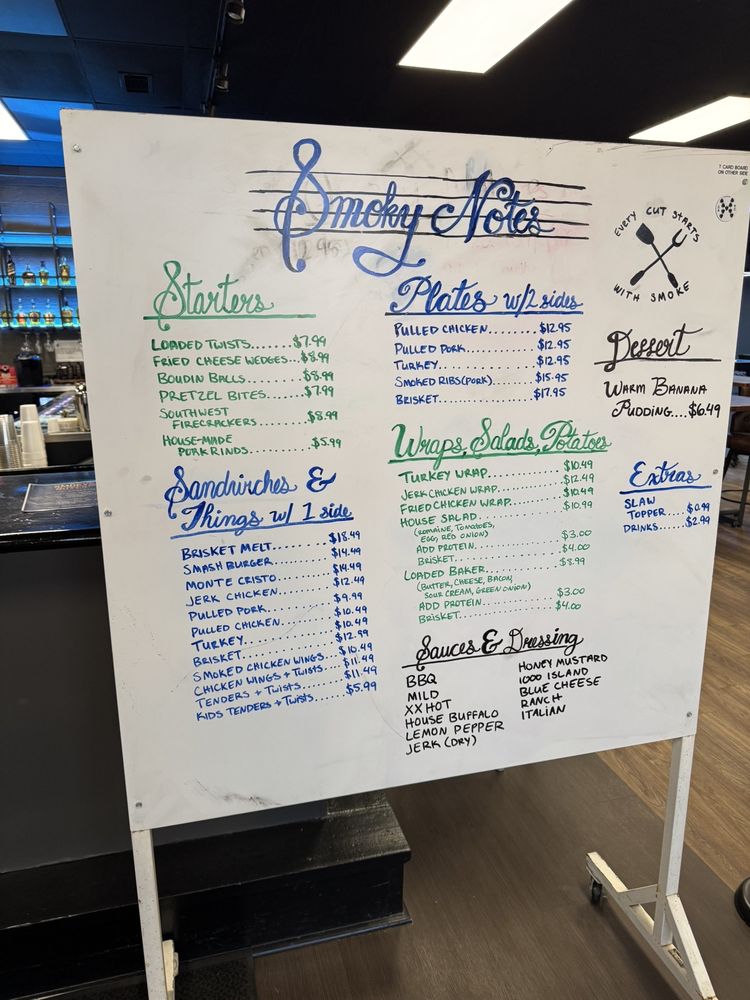 T CARD BOARD
ON OTHER SIDE
Smoky Notes
EVERY CUT STARTS
WITH SMOKE
Starters
LOADED TWISTS.......$7.99
FRIED CHEESE WEDGES...$8.99
BOUDIN BALLS........$8.99
PRETZEL BITES.......$7.99
SOUTHWEST
FIRECRACKERS........$8.99
HOUSE-MADE
PORK RINDS........$5.99
Sandwiches &
Things w/ 1 side
BRISKET MELT........$18.49
SMASH BURGER........$14.49
MONTE CRISTO........$14.49
JERK CHICKEN........$12.49
PULLED PORK........$9.99
PULLED CHICKEN........$10.49
TURKEY........$10.49
BRISKET........$12.99
SMOKED CHICKEN WINGS...$10.49
CHICKEN WINGS + TWISTS...$11.49
TENDERS + TWISTS........$11.49
KIDS TENDERS + TWISTS.....$5.99
Plates w/2 sides
PULLED CHICKEN........$12.95
PULLED PORK........$12.95
TURKEY........$12.95
SMOKED RIBS (PORK)........$15.95
BRISKET........$17.95
Wraps, Salads, Potatoes
TURKEY WRAP........$10.49
JERK CHICKEN WRAP........$12.49
FRIED CHICKEN WRAP........$10.49
HOUSE SALAD........$10.99
(ROMAINE, TOMATOES,
EGG, RED ONION)
ADD PROTEIN........$3.00
BRISKET........$4.00
LOADED BAKER........$8.99
(BUTTER, CHEESE, BACON,
SOUR CREAM, GREEN ONION)
ADD PROTEIN........$3.00
BRISKET........$4.00
Sauces & Dressing
BBQ
MILD
XX HOT
HOUSE BUFFALO
LEMON PEPPER
JERK (DRY)
HONEY MUSTARD
1000 ISLAND
BLUE CHEESE
RANCH
ITALIAN
Dessert
WARM BANANA
PUDDING...$6.49
Extras
SLAW
TOPPER....$0.99
DRINKS....$2.99